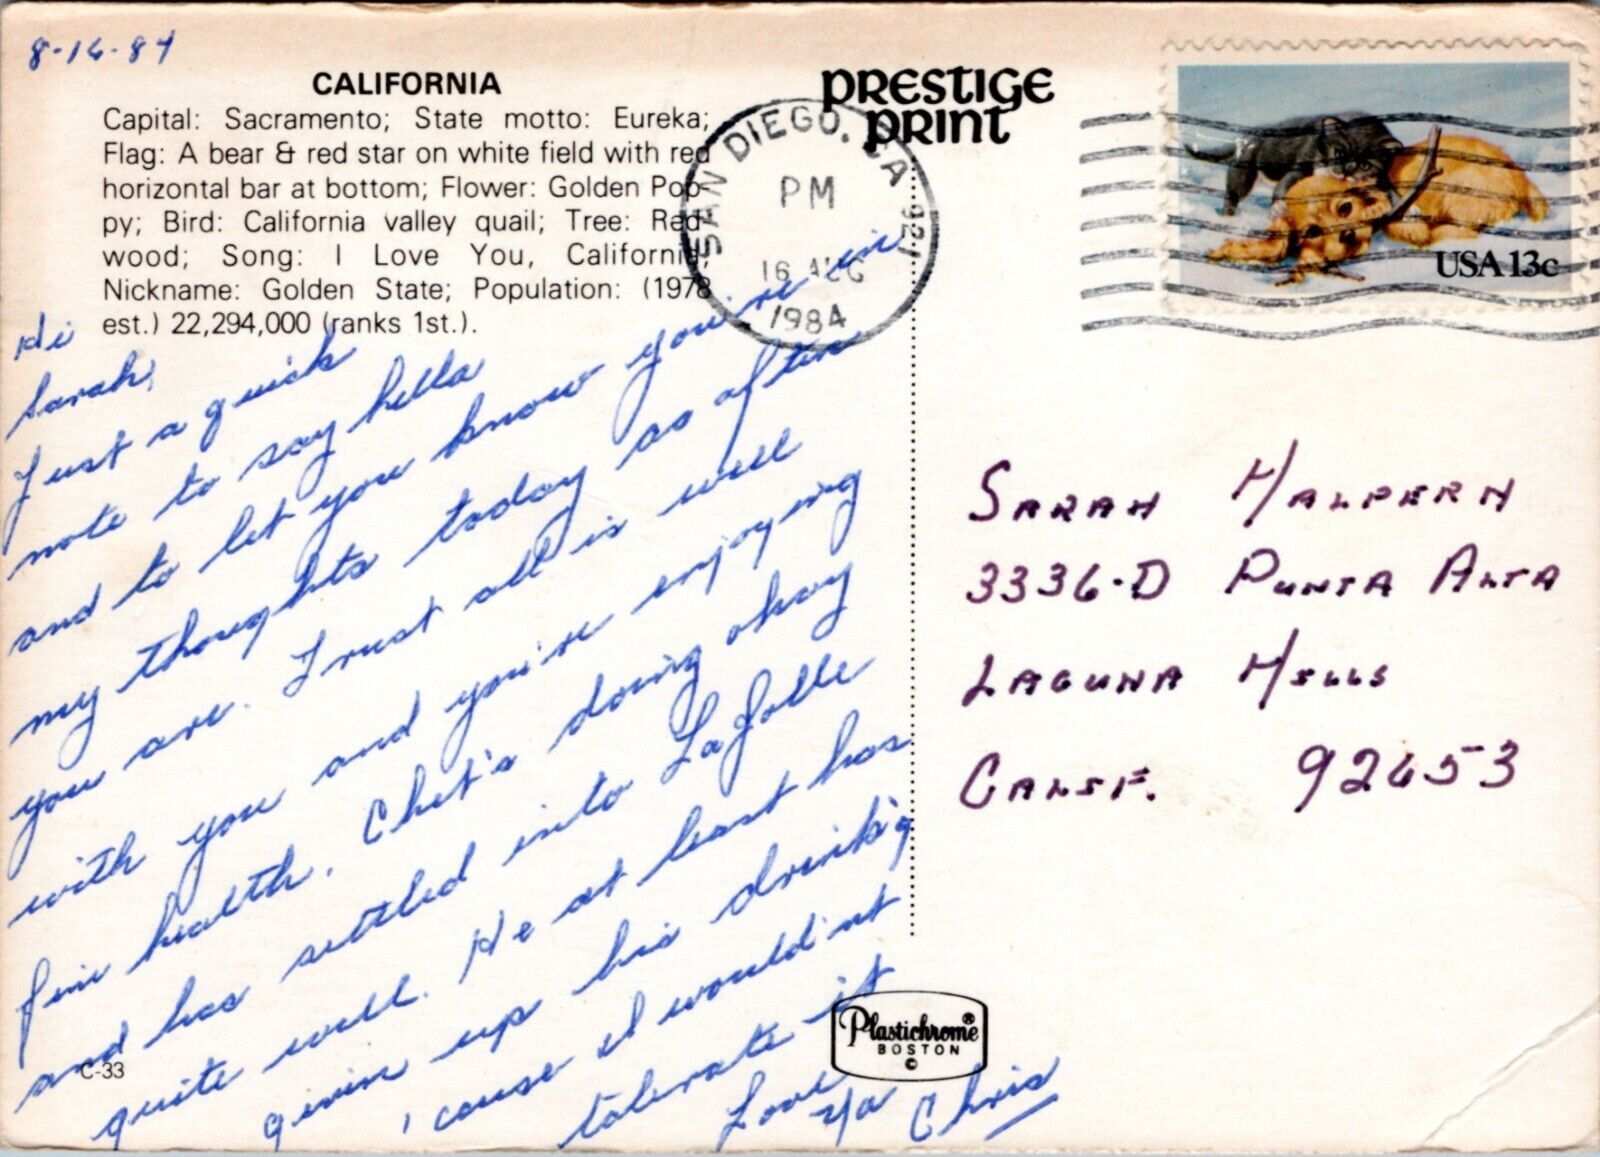 8-16-84
CALIFORNIA
Capital: Sacramento; State motto: Eureka;
Flag: A bear & red star on white field with red
horizontal bar at bottom; Flower: Golden Pop-
py; Bird: California valley quail; Tree: Red-
wood; Song: I Love You, California;
Nickname: Golden State; Population: (1978
est.) 22,294,000 (ranks 1st.).
PRESTIGE
PRINT
SAN DIEGO, CA 921
PM
16 AUG
1984
USA 13c
Hi
Sarah,
Just a quick
note to say hello
and to let you know you're in
my thoughts today as often
you are. Trust all is well
with you and you're enjoying
fine health. Chet's doing okay
and has settled into La Jolla
quite well. He at least has
given up his drink'g
'cause I wouldn't
tolerate it
Love
ya Chris
SARAH HALPERN
3336-D PUNTA ALTA
LAGUNA HILLS
CALIF. 92653
Plastichrome®
BOSTON
©
C-33